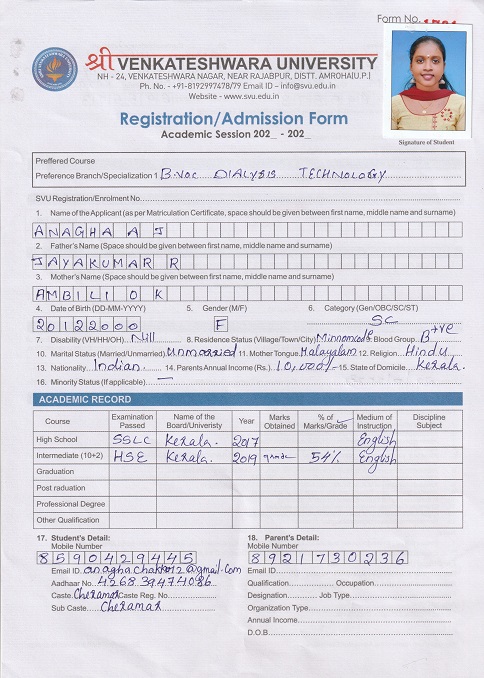 Form No.
श्री VENKATESHWARA UNIVERSITY
NH - 24, VENKATESHWARA NAGAR, NEAR RAJABPUR, DISTT. AMROHA(U.P.)
Ph. No. - +91-8192997478/79 Email ID - info@svu.edu.in
Website - www.svu.edu.in
Registration/Admission Form
Academic Session 202_ - 202_
Signature of Student
Preffered Course
Preference Branch/Specialization 1 B.voc DIALYSIS TECHNOLOGY
SVU Registration/Enrolment No
1. Name of the Applicant (as per Matriculation Certificate, space should be given between first name, middle name and surname)
ANAGHA A J
2. Father's Name (Space should be given between first name, middle name and surname)
JAYAKUMAR R
3. Mother's Name (Space should be given between first name, middle name and surname)
AMBILI O K
4. Date of Birth (DD-MM-YYYY) 5. Gender (M/F) 6. Category (Gen/OBC/SC/ST)
20122000 F SC
7. Disability (VH/HH/OH) Nill 8. Residence Status (Village/Town/City) 9. Blood Group B+ve
10. Marital Status (Married/Unmarried) Unmarried 11. Mother Tongue Malayalam 12. Religion Hindu
13. Nationality Indian 14. Parents Annual Income (Rs.) 10,000/- 15. State of Domicile Kerala.
16. Minority Status (If applicable) —
ACADEMIC RECORD
Course Examination Passed Name of the Board/Univeristy Year Marks Obtained % of Marks/Grade Medium of Instruction Discipline Subject
High School SSLC Kerala. 2017 English
Intermediate (10+2) HSE Kerala. 2019 grade 54% English
Graduation
Post raduation
Professional Degree
Other Qualification
17. Student's Detail: 18. Parent's Detail:
Mobile Number Mobile Number
8590429445 8921730236
Email ID. Email ID
Aadhaar No. Qualification Occupation
Caste Cheramar Caste Reg. No. Designation Job Type
Sub Caste Cheramar Organization Type
Annual Income
D.O.B